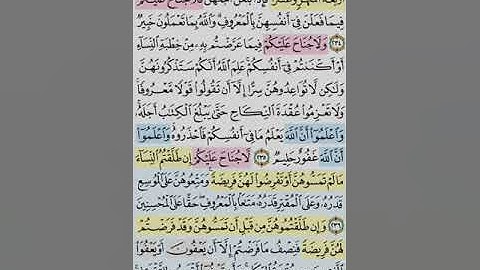 فِيمَا فَعَلْنَ فِىٓ أَنفُسِهِنَّ بِٱلْمَعْرُوفِ وَٱللَّهُ بِمَا تَعْمَلُونَ خَبِيرٌ
٢٣٤ وَلَا جُنَاحَ عَلَيْكُمْ فِيمَا عَرَّضْتُم بِهِۦ مِنْ خِطْبَةِ ٱلنِّسَآءِ
أَوْ أَكْنَنتُمْ فِىٓ أَنفُسِكُمْ عَلِمَ ٱللَّهُ أَنَّكُمْ سَتَذْكُرُونَهُنَّ
وَلَٰكِن لَّا تُوَاعِدُوهُنَّ سِرًّا إِلَّآ أَن تَقُولُوا۟ قَوْلًا مَّعْرُوفًا
وَلَا تَعْزِمُوا۟ عُقْدَةَ ٱلنِّكَاحِ حَتَّىٰ يَبْلُغَ ٱلْكِتَٰبُ أَجَلَهُۥ
وَٱعْلَمُوٓا۟ أَنَّ ٱللَّهَ يَعْلَمُ مَا فِىٓ أَنفُسِكُمْ فَٱحْذَرُوهُ وَٱعْلَمُوٓا۟
أَنَّ ٱللَّهَ غَفُورٌ حَلِيمٌ ٢٣٥ لَّا جُنَاحَ عَلَيْكُمْ إِن طَلَّقْتُمُ ٱلنِّسَآءَ
مَا لَمْ تَمَسُّوهُنَّ أَوْ تَفْرِضُوا۟ لَهُنَّ فَرِيضَةً وَمَتِّعُوهُنَّ عَلَى ٱلْمُوسِعِ
قَدَرُهُۥ وَعَلَى ٱلْمُقْتِرِ قَدَرُهُۥ مَتَٰعًۢا بِٱلْمَعْرُوفِ حَقًّا عَلَى ٱلْمُحْسِنِينَ
٢٣٦ وَإِن طَلَّقْتُمُوهُنَّ مِن قَبْلِ أَن تَمَسُّوهُنَّ وَقَدْ فَرَضْتُمْ
لَهُنَّ فَرِيضَةً فَنِصْفُ مَا فَرَضْتُمْ إِلَّآ أَن يَعْفُونَ أَوْ يَعْفُوَا۟